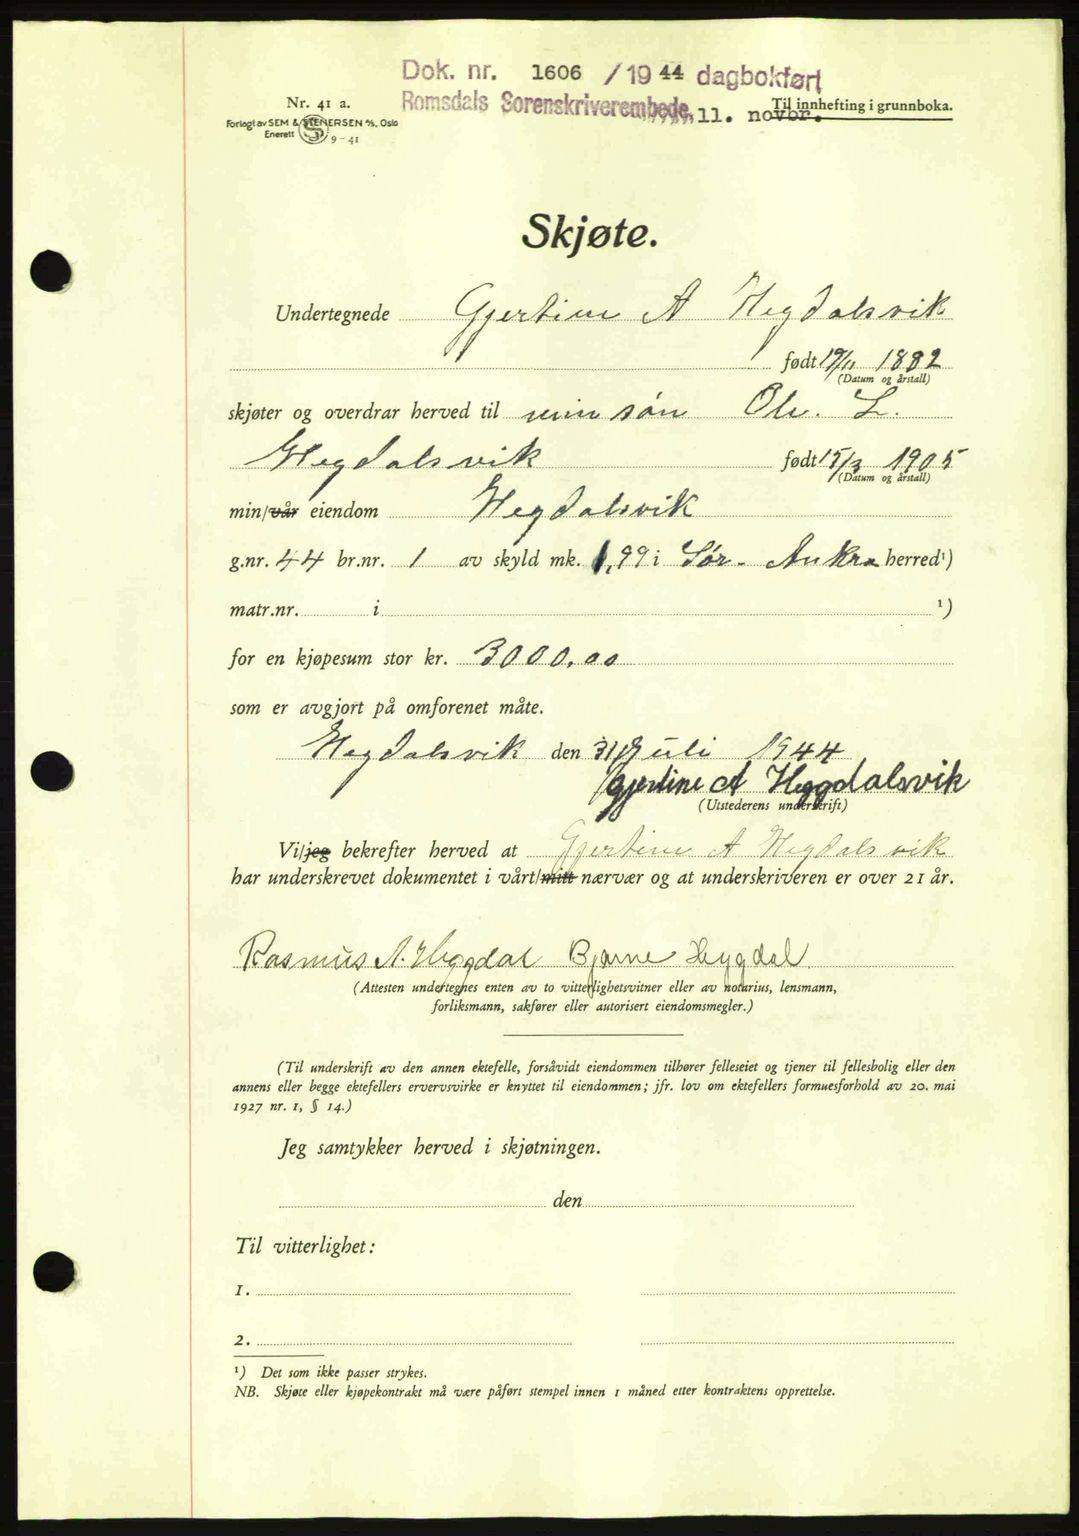 Dok. nr. 1606 / 1944 dagbokført
Romsdals Sorenskriverembede, 11. novbr.
Nr. 41 a.
Til innhefting i grunnboka.
Forlagt av SEM & STENERSEN A/S, Oslo
Enerett S 9-41
Skjøte.
Undertegnede Gjertine A Hegdalsvik
født 19/11 1882
(Datum og årstall)
skjøter og overdrar herved til min søn Ole. L.
Hegdalsvik født 15/3 1905
(Datum og årstall)
min/vår eiendom Hegdalsvik
g.nr. 44 br.nr. 1 av skyld mk. 1,99 i Sør-Aukra herred¹)
matr.nr. i ¹)
for en kjøpesum stor kr. 3000,00
som er avgjort på omforenet måte.
Hegdalsvik den 31 Juli 1944
Gjertine A Heggdalsvik
(Utstederens underskrift)
Vi/jeg bekrefter herved at Gjertine A Hegdalsvik
har underskrevet dokumentet i vårt/mitt nærvær og at underskriveren er over 21 år.
Rasmus A. Heggdal Bjarne Heggdal
(Attesten undertegnes enten av to vitterlighetsvitner eller av notarius, lensmann,
forliksmann, sakfører eller autorisert eiendomsmegler.)
(Til underskrift av den annen ektefelle, forsåvidt eiendommen tilhører felleseiet og tjener til fellesbolig eller den
annens eller begge ektefellers ervervsvirke er knyttet til eiendommen; jfr. lov om ektefellers formuesforhold av 20. mai
1927 nr. 1, § 14.)
Jeg samtykker herved i skjøtningen.
den
Til vitterlighet:
1.
2.
¹) Det som ikke passer strykes.
NB. Skjøte eller kjøpekontrakt må være påført stempel innen 1 måned etter kontraktens opprettelse.